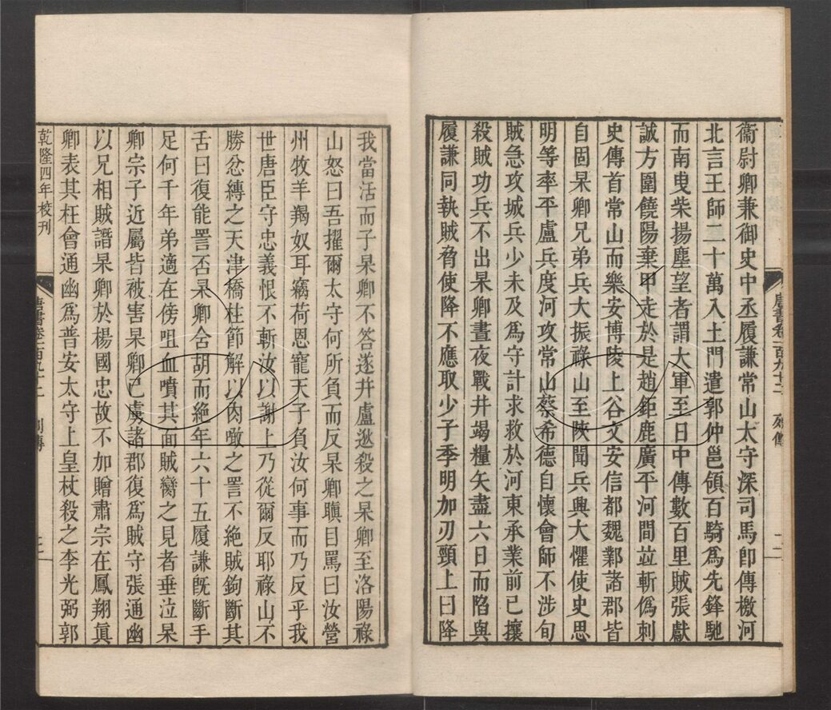 衞尉卿兼御史中丞履謙常山太守深司馬卽傳檄河
北言王師二十萬入土門遣郭仲邕領百騎爲先鋒馳
而南曳柴揚塵望者謂大軍至日中傳數百里賊張獻
誠方圍饒陽棄甲走於是趙鉅鹿廣平河間竝斬僞刺
史傳首常山而樂安博陵上谷文安信都魏鄴諸郡皆
自固杲卿兄弟兵大振祿山至陝聞兵興大懼使史思
明等率平盧兵度河攻常山蔡希德自懷會師不涉旬
賊急攻城兵少未及爲守計求救於河東承業前已攘
殺賊功兵不出杲卿晝夜戰井竭糧矢盡六日而陷與
履謙同執賊脅使降不應取少子季明加刃頸上曰降
唐書卷一百九十二 列傳
我當活而子杲卿不答遂幷盧逖殺之杲卿至洛陽祿
山怒曰吾擢爾太守何所負而反杲卿瞋目罵曰汝營
州牧羊羯奴耳竊荷恩寵天子負汝何事而乃反乎我
世唐臣守忠義恨不斬汝以謝上乃從爾反耶祿山不
勝忿縛之天津橋柱節解以肉噉之詈不絕賊鉤斷其
舌曰復能詈否杲卿含胡而絕年六十五履謙旣斷手
足何千年弟適在傍咀血噴其面賊臠之見者垂泣杲
卿宗子近屬皆被害杲卿已虜諸郡復爲賊守張通幽
以兄相賊譖杲卿於楊國忠故不加贈肅宗在鳳翔眞
卿表其枉會通幽爲普安太守上皇杖殺之李光弼郭
乾隆四年校刊
唐書卷一百九十二 列傳